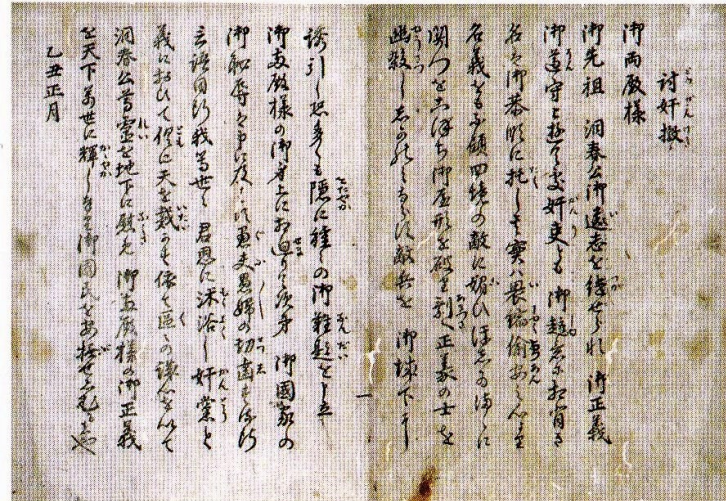 討奸檄
御両殿様
御先祖 洞春公御遺志を継せられ 御正義
御遵守被遊候処奸吏とも 御趣意に相背き
名は御恭順に托し其実ハ畏縮偸安の心より
名義をも不顧四境の敵に媚ひほしゐまゝに
関門をこほち御屋形を破り剰へ正義の士を
幽殺ししかのみならす敵兵を 御城下に
誘引し恐多くも隠に種々の御難題を申立
御両殿様の御身上に相迫り候次第 御国家の
御恥辱は申に及はす愚夫愚婦の切歯する所
言語同断我等世々 君恩に沐浴し奸党と
義におひて倶に天を戴かす依て区々の誠心を以て
洞春公尊霊を地下に慰し 御両殿様の御正義
を天下万世に輝し奉り御国民を安撫せしむる者也
乙丑正月